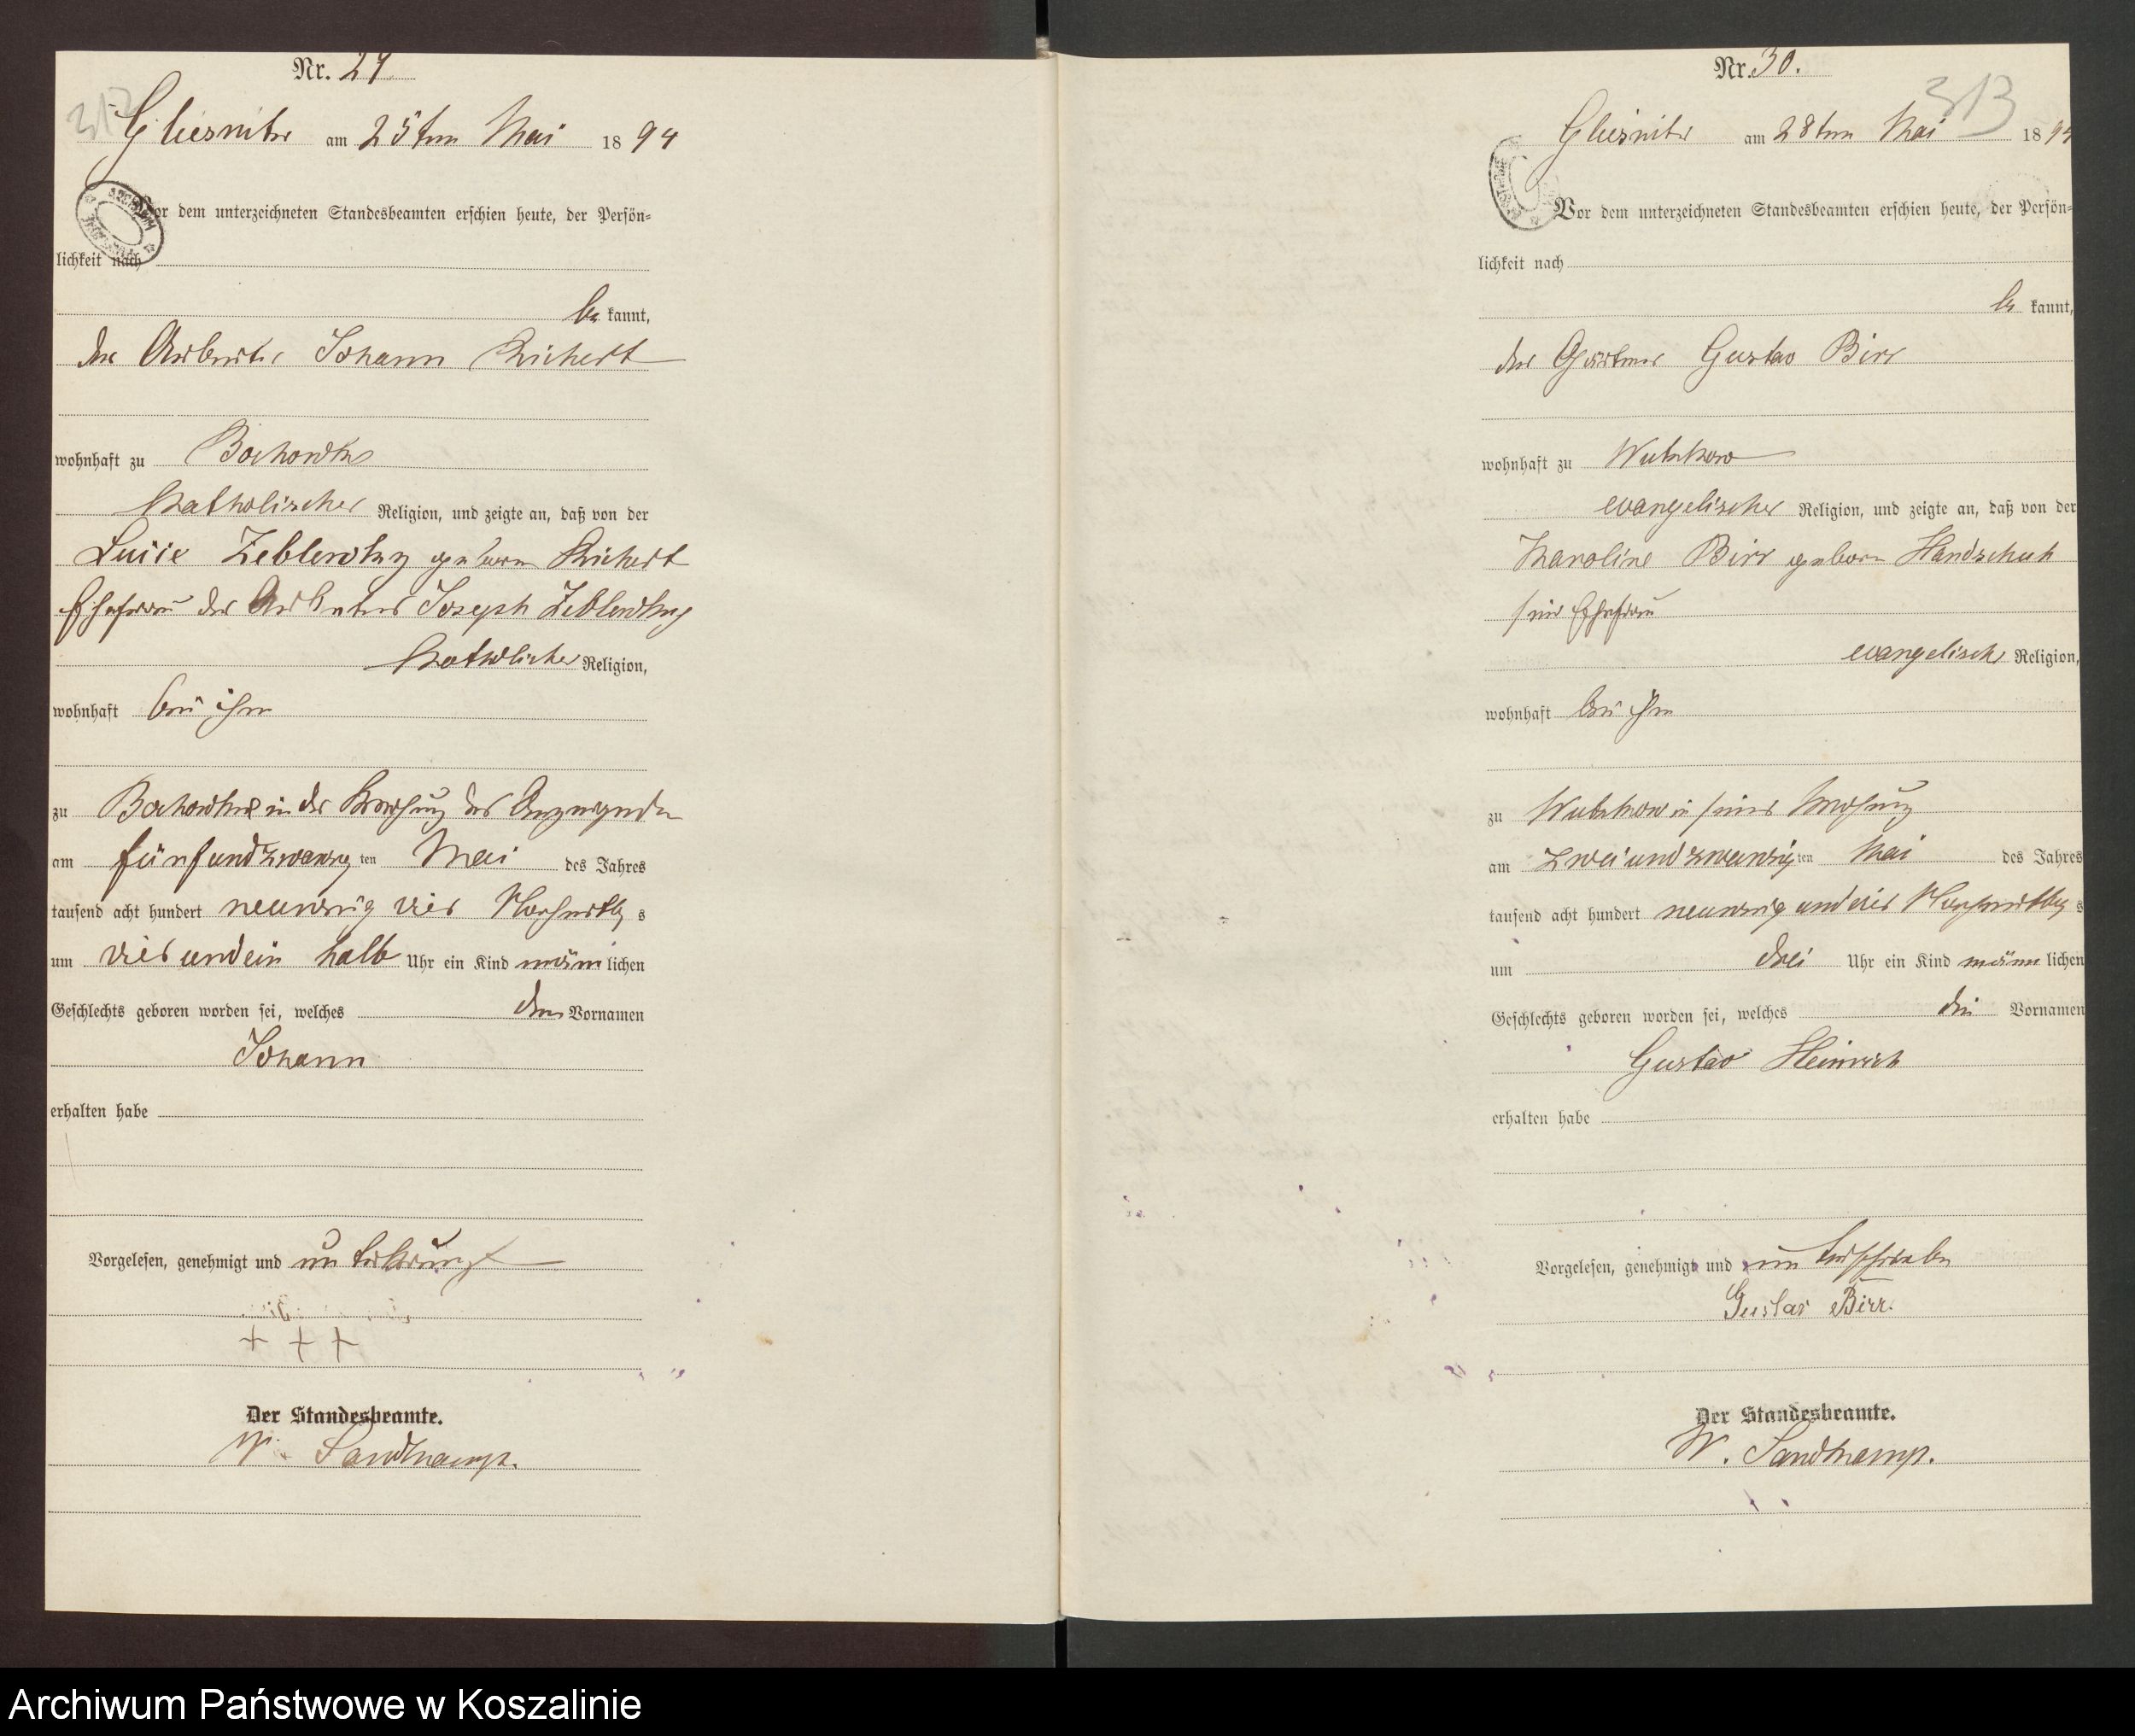 Nr. 29.
312
Gliesnitz am 25ten Mai 1894
Vor dem unterzeichneten Standesbeamten erschien heute, der Persön-
lichkeit nach
be kannt,
der Arbeiter Johann Richert
wohnhaft zu Bochowke
katholischer Religion, und zeigte an, daß von der
Luise Zeblewsky geborn Richert
Ehefrau des Arbeiters Joseph Zeblewsky
katholischer Religion,
wohnhaft bei ihm
zu Bochowke in der Behausung des Anzeigenden
am fünfundzwanzig ten Mai des Jahres
tausend acht hundert neunzig vier Vormittag s
um vier undein halb Uhr ein Kind männlichen
Geschlechts geboren worden sei, welches den Vornamen
Johann
erhalten habe
Vorgelesen, genehmigt und unterkreuzt
+ + +
Der Standesbeamte.
W. Sandkamp.
Nr. 30.
313
Gliesnitz am 28ten Mai 1894
Vor dem unterzeichneten Standesbeamten erschien heute, der Persön-
lichkeit nach
be kannt,
der Gärtner Gustav Birr
wohnhaft zu Wutzkow
evangelischer Religion, und zeigte an, daß von der
Karoline Birr geborn Handschuh
seine Ehefrau
evangelisch Religion,
wohnhaft bei ihm
zu Wutzkow in seiner Wohnung
am zwei und zwanzig ten Mai des Jahres
tausend acht hundert neunzig und vier Vormittag s
um drei Uhr ein Kind männ lichen
Geschlechts geboren worden sei, welches die Vornamen
Gustav Heinrich
erhalten habe
Vorgelesen, genehmigt und unterschrieben
Gustav Birr.
Der Standesbeamte.
W. Sandkamp.
Archiwum Państwowe w Koszalinie